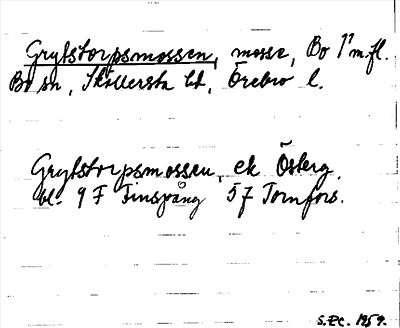 Grytstorpsmossen, mosse, Bo 1¹ m.fl.
Bo sn, Sköllersta hd, Örebro l.
Grytstorpsmossen, ek Österg.
bl. 9 F Finspång 5 f Tornfors.
S.EC. 1959.